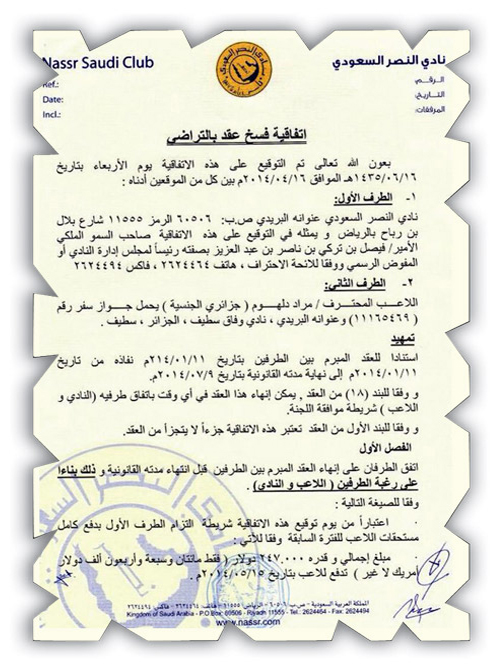 Nassr Saudi Club
نادي النصر السعودي
Ref.:
Date:
Incl.:
الرقم:
التاريخ:
المرفقات:
اتفاقية فسخ عقد بالتراضي
بعون الله تعالى تم التوقيع على هذه الاتفاقية يوم الأربعاء بتاريخ
١٤٣٥/٠٦/١٦هـ الموافق ٢٠١٤/٠٤/١٦م بين كل من الموقعين أدناه :
١- الطرف الأول:
نادي النصر السعودي عنوانه البريدي ص.ب: ٦٠٥٠٦ الرمز ١١٥٥٥ شارع بلال
بن رباح بالرياض و يمثله في التوقيع على هذه الاتفاقية صاحب السمو الملكي
الأمير/ فيصل بن تركي بن ناصر بن عبد العزيز بصفته رئيساً لمجلس إدارة النادي أو
المفوض الرسمي ووفقا للائحة الاحتراف ، هاتف ٢٦٢٤٤٦٤ ، فاكس ٢٦٢٤٤٩٤
٢- الطرف الثاني:
اللاعب المحترف / مراد دلهوم ( جزائري الجنسية ) يحمل جواز سفر رقم
( ١١١٦٥٤٦٩ ) وعنوانه البريدي ، نادي وفاق سطيف ، الجزائر ، سطيف .
تمهيد
استنادا للعقد المبرم بين الطرفين بتاريخ ٢١٤/٠١/١١م نفاذه من تاريخ
٢٠١٤/٠١/١١م إلى نهاية مدته القانونية بتاريخ ٢٠١٤/٠٧/٩م.
و وفقا للبند (١٨) من العقد , يمكن إنهاء هذا العقد في أي وقت باتفاق طرفيه (النادي و
اللاعب ) شريطة موافقة اللجنة.
و وفقا للبند الأول من العقد تعتبر هذه الاتفاقية جزءاً لا يتجزأ من العقد.
الفصل الأول
اتفق الطرفان على إنهاء العقد المبرم بين الطرفين قبل انتهاء مدته القانونية و ذلك بناءا
على رغبة الطرفين ( اللاعب و النادي ) .
وفقا للصيغة التالية :
· اعتباراً من يوم توقيع هذه الاتفاقية شريطة التزام الطرف الأول بدفع كامل
مستحقات اللاعب للفترة السابقة وفقا للآتي :
مبلغ إجمالي و قدره ٢٤٧.٠٠٠ دولار ( فقط مائتان وسبعة وأربعون ألف دولار
أمريك لا غير ) تدفع للاعب بتاريخ ٢٠١٤/٠٥/١٥م .
المملكة العربية السعودية - ص.ب ٦٠٥٠٦ - الرياض ١١٥٥٥ - هاتف: ٢٦٢٤٤٦٤ - فاكس: ٢٦٢٤٤٩٤
Kingdom of Saudi Arabia - P.O.Box: 60506 - Riyadh 11555 - Tel.: 2624464 - Fax: 2624494
www.nassr.com